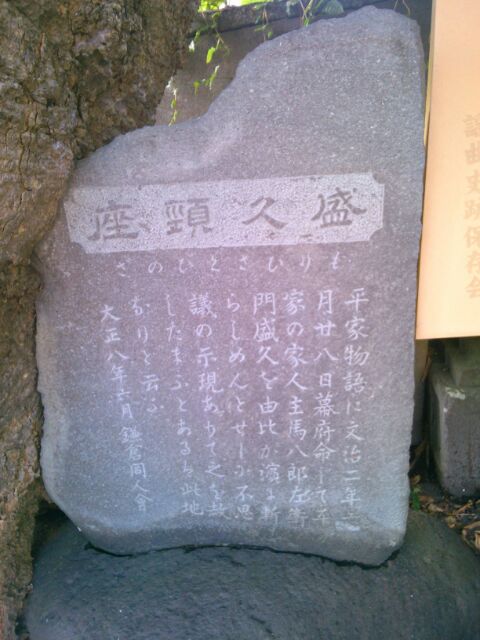 盛久頸座
もりひさくびのざ
平家物語に文治二年六
月廿八日幕府命して平
家の家人主馬八郎左衛
門盛久を由比か濱に斬
らしめんとせしか不思
議の示現ありて之を
したまふとあるは此地
なりと云ふ
大正八年六月 鎌倉同人會
謡曲史跡保存会